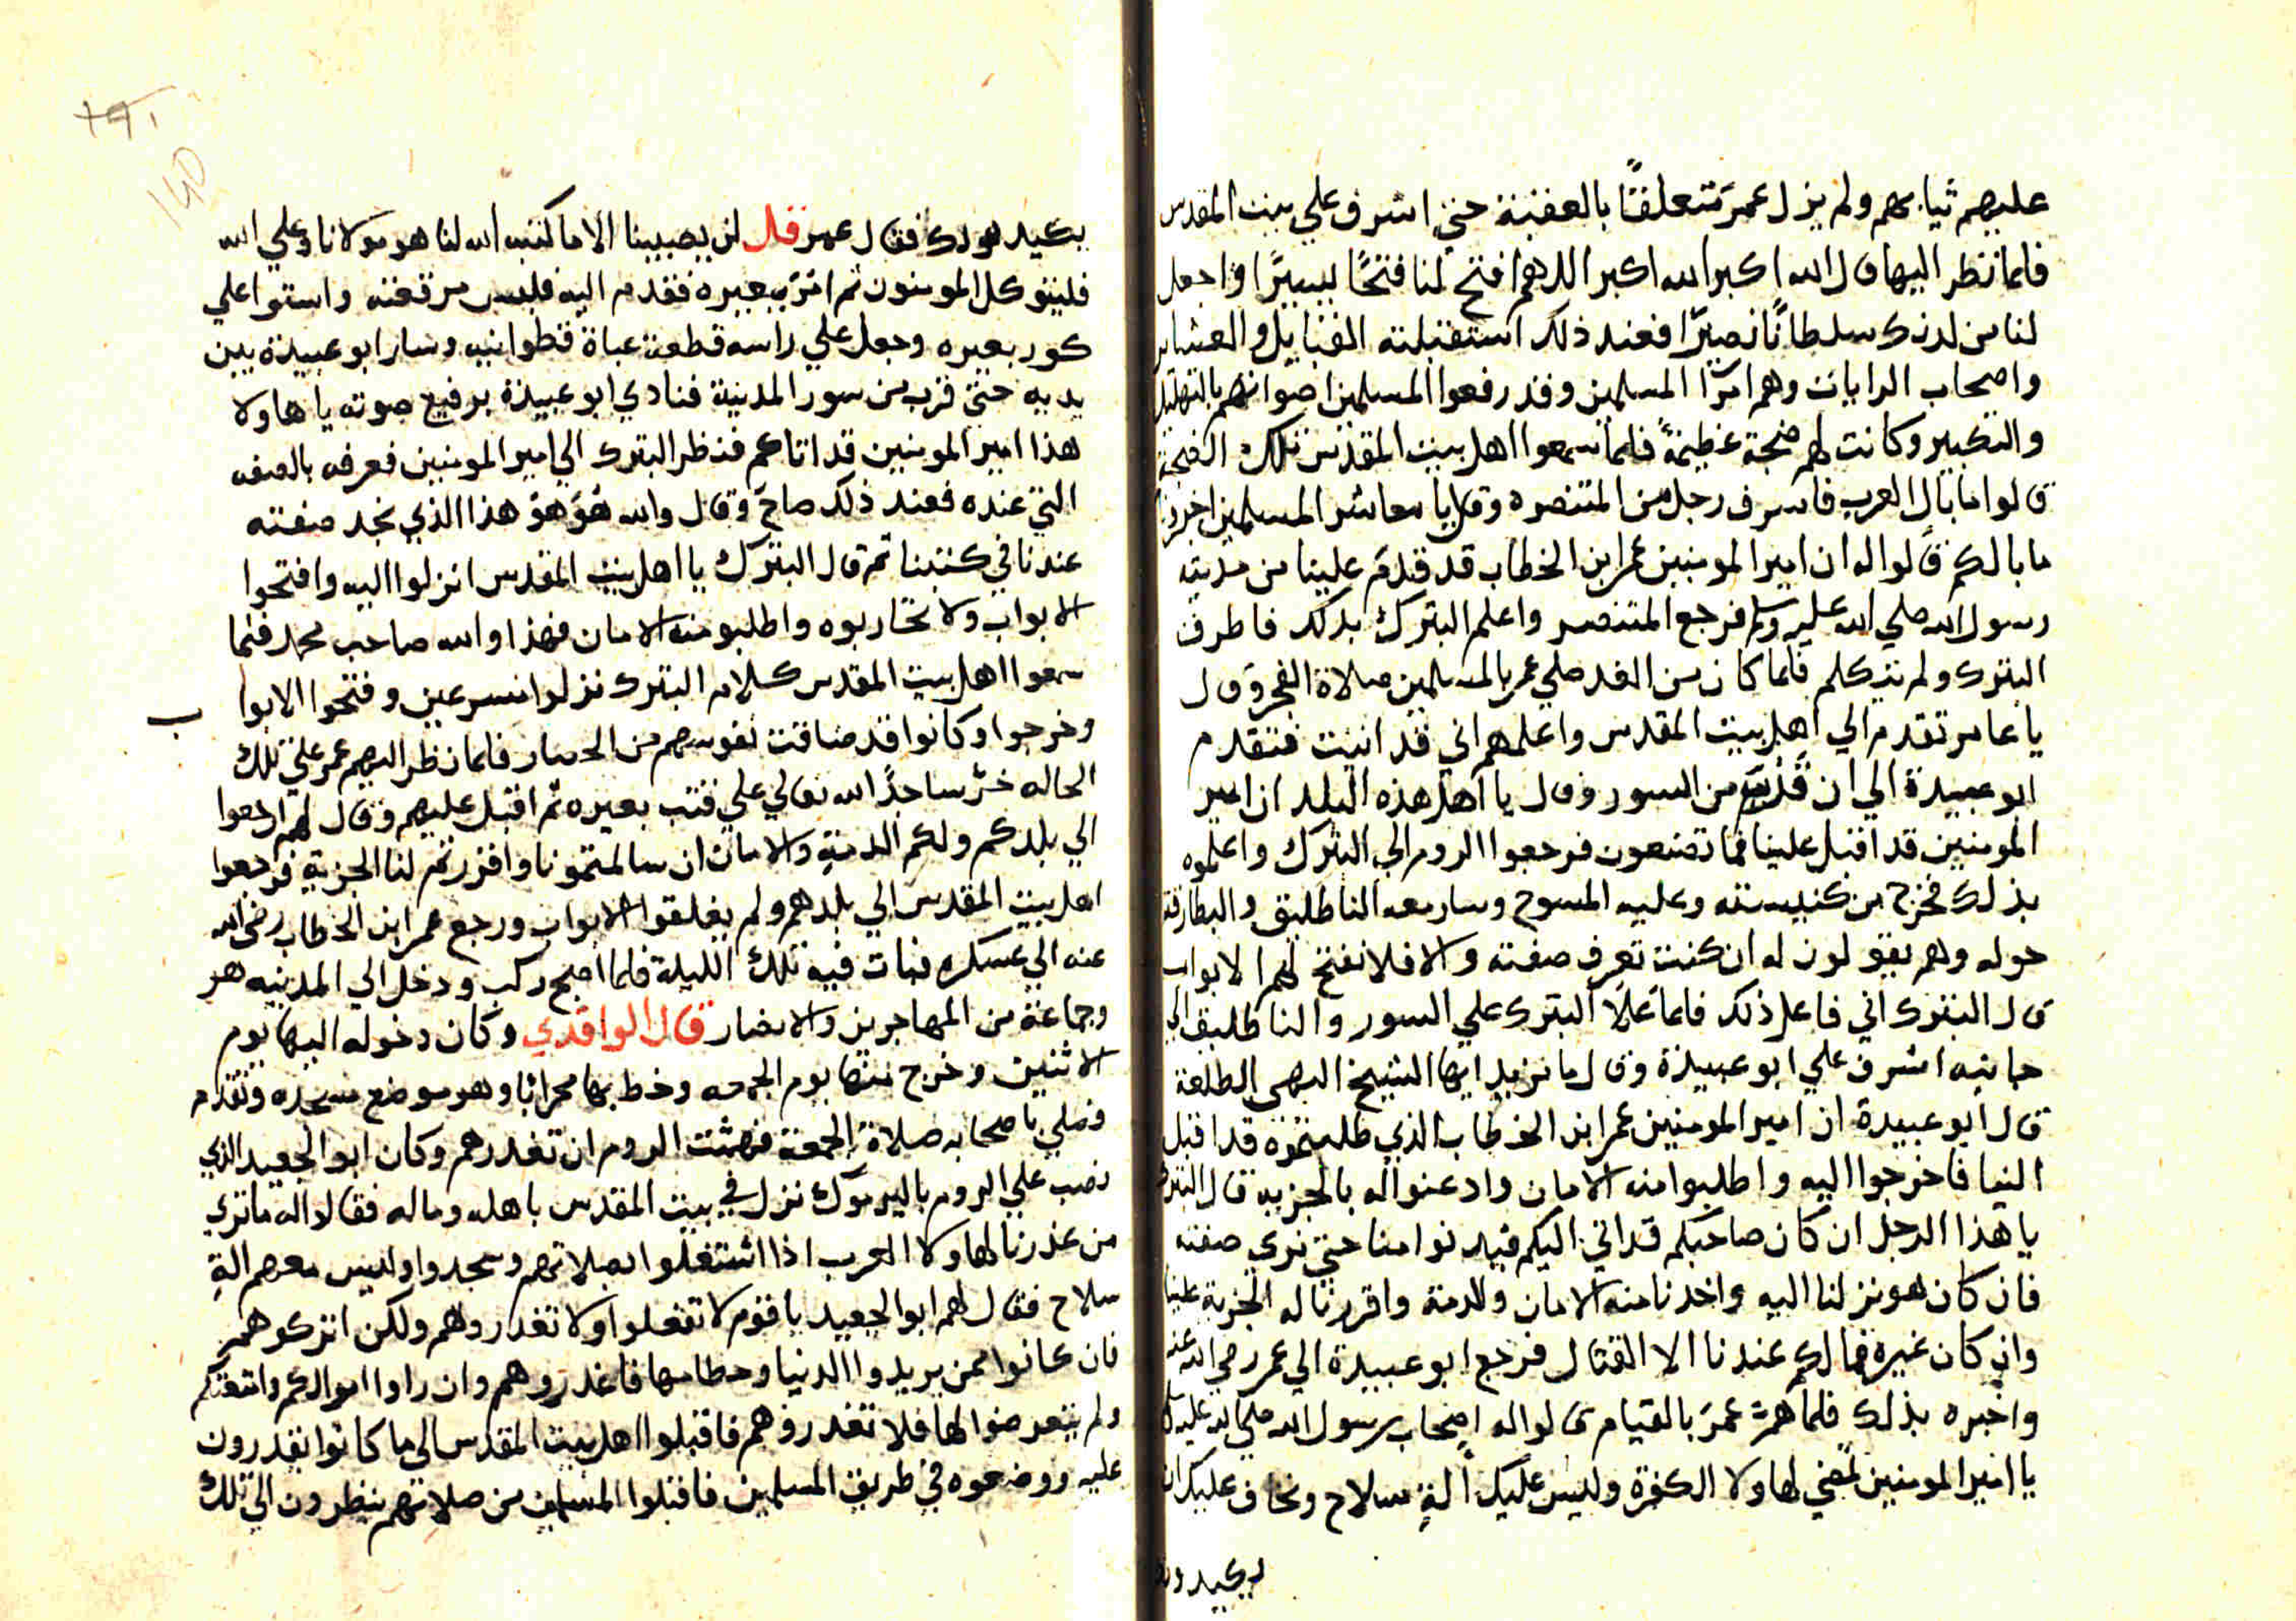 عليهم ثيابهم ولم يزل عمر متعلقًا بالعقبة حتي اشرف علي بيت المقدس
فلما نظر اليها قال الله اكبر الله اكبر اللهم افتح لنا فتحًا يسيرًا واجعل
لنا من لدنك سلطانًا نصيرًا فعند ذلك استقبلته القبايل والعشاير
واصحاب الرايات وهم امرا المسلمين وقد رفعوا المسلمين اصواتهم بالتهليل
والتكبير وكانت لهم ضجة عظيمة فلما سمعوا اهل بيت المقدس تلك الضجة
قالوا ما بال العرب فاشرف رجل من المتنصره وقال يا معاشر المسلمين اخبرونا
ما بالكم قالوا له ان امير المومنين عمر ابن الخطاب قد قدم علينا من مدينة
رسول الله صلي الله عليه وسلم فرجع المتنصر واعلم البترك بذلك فاطرق
البترك ولم يتكلم فلما كان من الغد صلي عمر بالمسلمين صلاة الفجر وقال
يا عامر تقدم الي اهل بيت المقدس واعلمهم اني قد اتيت فتقدم
ابو عبيدة الي ان قرب من السور وقال يا اهل هذه البلد ان امير
المومنين قد اقبل علينا فما تصنعون فرجعوا الروم الي البترك واعلموه
بذلك فخرج من كنيسته وعليه المسوح وسار معه الناطليق والبطارقة
حوله وهم يقولون له ان كنت تعرف صفته والا فلا نفتح لهم الابواب
قال البترك اني فاعل ذلك فلما علا البترك علي السور والناطليق الي
جانبه اشرف علي ابو عبيدة وقال ما تريد ايها الشيخ البهي الطلعة
قال ابو عبيدة ان امير المومنين عمر ابن الخطاب الذي طلبتموه قد اقبل
الينا فاخرجوا اليه واطلبوا منه الامان وادعنوا له بالجزيه قال البترك
يا هذا الرجل ان كان صاحبكم قد اتي اليكم فيدنوا منا حتي نري صفته
فان كان هو نزلنا اليه واخذنا منه الامان والذمة واقررنا له الجزية علينا
وان كان غيره فما لكم عندنا الا القتال فرجع ابو عبيدة الي عمر رضي الله عنه
واخبره بذلك فلما هم عمر بالقيام قالوا له اصحاب رسول الله صلي الله عليه وسلم
يا امير المومنين تمضي لهاولا الكفرة وليس عليك الة سلاح ونخاف عليك ان
يكيدونك
بكيد لهولك فقال عمر قل لن يصيبنا الا ما كتب الله لنا هو مولانا وعلي الله
فليتوكل المومنون ثم امر ببعيره فقدم اليه فلبس مرقعته واستوا علي
كور بعيره وجعل علي راسه قطعة عباة قطوانيه وسار ابو عبيدة بين
يديه حتي قرب من سور المدينة فنادي ابو عبيدة برفيع صوته يا هاولا
هذا امير المومنين قد اتاكم فنظر البترك الي امير المومنين فعرفه بالصفه
التي عنده فعند ذلك صاح وقال والله هو هو هذا الذي نجد صفته
عندنا في كتبنا ثم قال البترك يا اهل بيت المقدس انزلوا اليه وافتحوا
الابواب ولا تحاربوه واطلبو منه الامان فهذا والله صاحب محمد فلما
سمعوا اهل بيت المقدس كلام البترك نزلوا مسرعين وفتحوا الابواب
وخرجوا وكانوا قد ضاقت نفوسهم من الحصار فلما نظر اليهم عمر علي تلك
الحاله خر ساجدًا لله تعالي علي قتب بعيره ثم اقبل عليهم وقال لهم ارجعوا
الي بلدكم ولكم الذمة والامان ان سالمتمونا واقررتم لنا الجزية فرجعوا
اهل بيت المقدس الي بلدهم ولم يغلقوا الابواب ورجع عمر ابن الخطاب رضي الله
عنه الي عسكره فبات فيه تلك الليلة فلما اصبح ركب ودخل الي المدينه هو
وجماعة من المهاجرين والانصار قال الواقدي وكان دخوله اليها يوم
الاثنين وخرج منها يوم الجمعه وخط بها محرابا وهو موضع مسجده وتقدم
وصلي باصحابه صلاة الجمعة فهمت الروم ان تغدرهم وكان ابو الجعيد الذي
نصب علي الروم باليرموك نزل في بيت المقدس باهله وماله فقالوا له ما تري
من غدرنا لهاولا العرب اذا اشتغلوا بصلاتهم وسجدوا وليس معهم الة
سلاح فقال لهم ابو الجعيد يا قوم لا تفعلوا ولا تغدروهم ولكن اتركوهم
فان كانوا ممن يريدوا الدنيا وحطامها فاغدروهم وان راوا اموالكم وامتعتكم
ولم يتعرضوا لها فلا تغدروهم فاقبلوا اهل بيت المقدس الي ما كانوا يقدرون
عليه ووضعوه في طريق المسلمين فاقبلوا المسلمين من صلاتهم ينظرون الي تلك